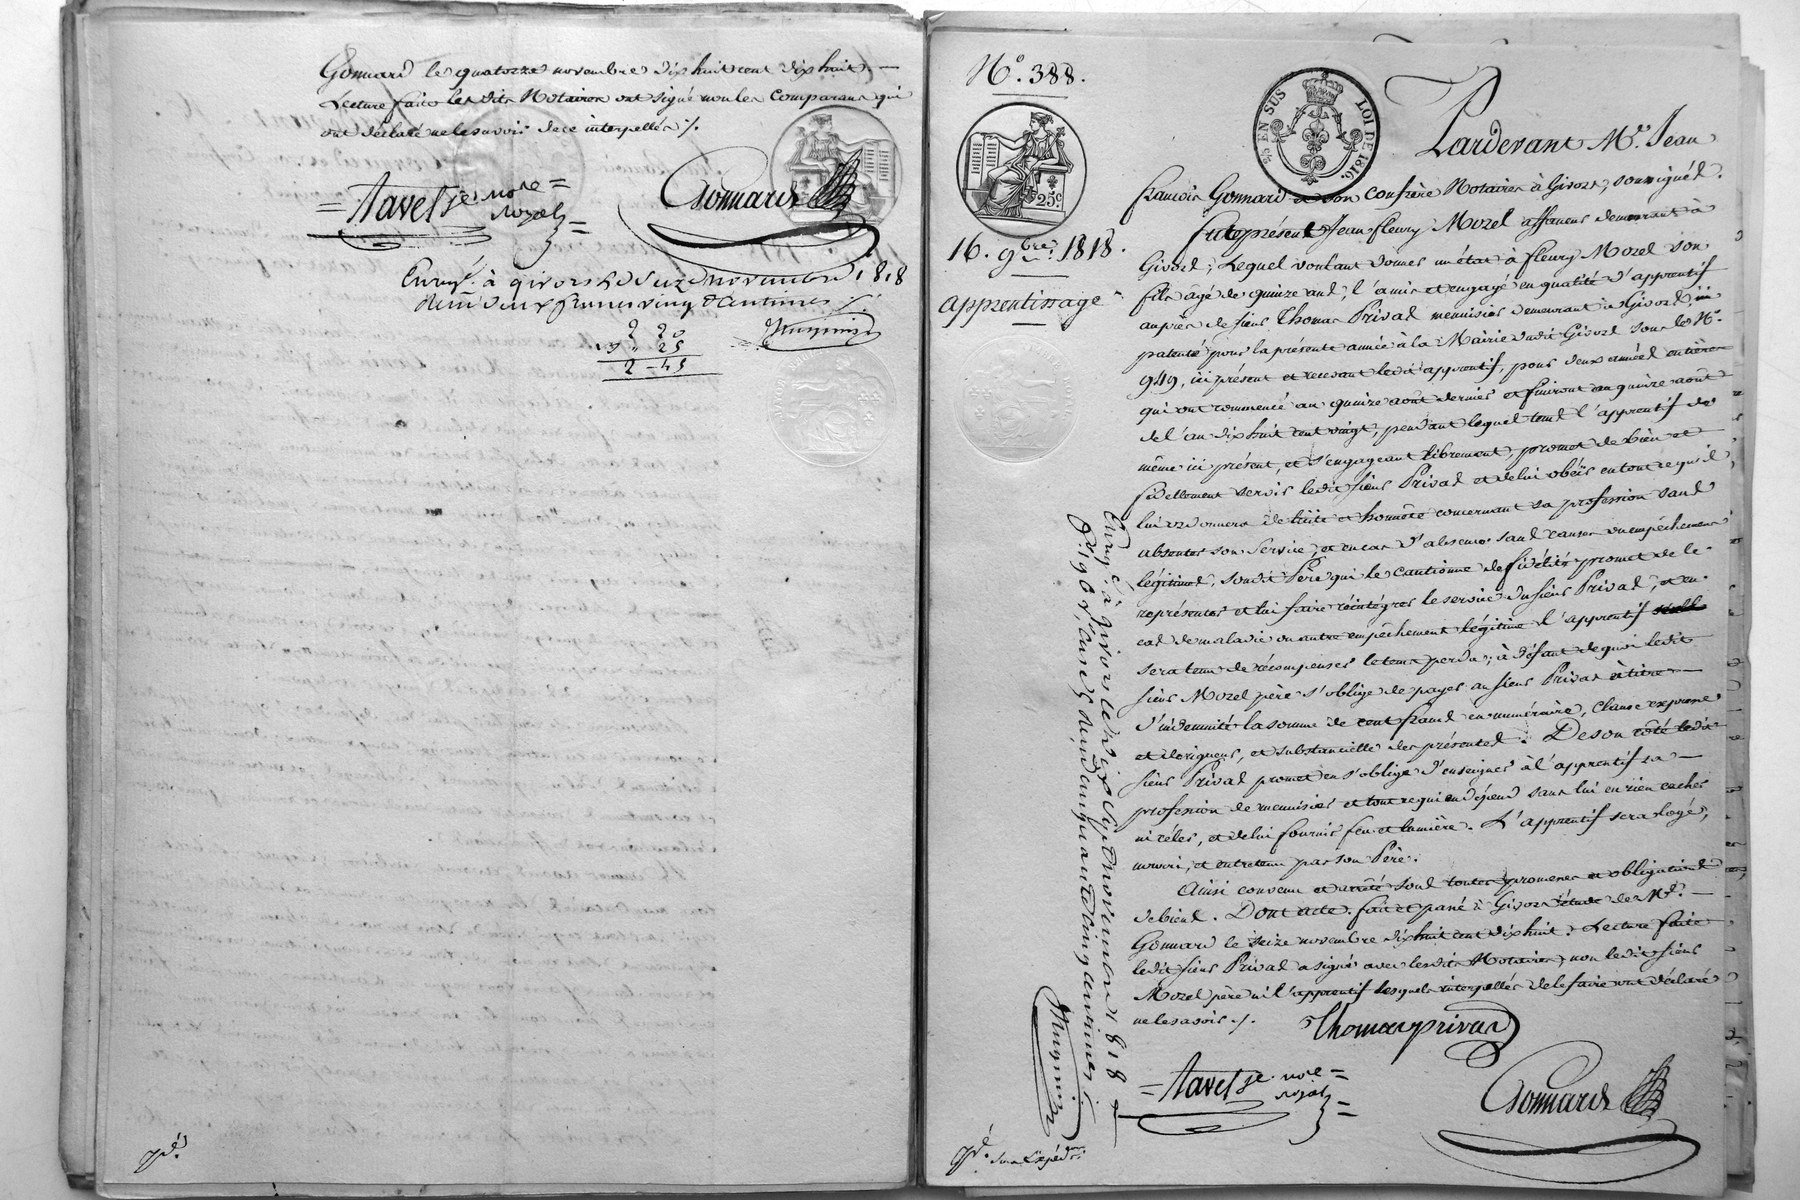 Gonnard le quatorze novembre dix huit cent dix huit. —
Lecture faite lesdits Notaires ont signé non les comparans qui
ont déclaré ne le savoir de ce interpellés ./.
= Tavel Je. Nore =
Royal =
Gonnard
Enregé. à givors le Seize novembre 1818
reçu deux francs vingt centimes ./.
2 20
25
2 - 45
jté.
N°. 388.
25c.
16. 9bre. 1818.
apprentissage
EN SUS
LOI DE 1816.
Pardevant Me. Jean
François Gonnard et son confrère Notaires à Givors, soussignés.
fut présent Jean fleury Mozel affaneur demeurant à
Givors; Lequel voulant donner un état à fleury Mozel son
fils âgé de quinze ans, l'a mis et engagé en qualité d'apprentif
auprès de sieur Thomas Privas menuisier demeurant à Givors,
patenté pour la présente année à la Mairie dudit Givors sous le N°.
949, ici présent et recevant ledit apprentif, pour deux années entières
qui ont commencé au quinze août dernier et finiront au quinze août
de l'an dix huit cent vingt, pendant lequel tems l'apprentif de
même ici présent, et s'engageant librement, promet de bien et
fidellement servir ledit sieur Privas et de lui obéir en tout ce qu'il
lui ordonnera de licite et honnête concernant sa profession sans
absenter son service, et en cas d'absence sans causes ou empêchemens
légitimes, sondit Père qui le cautionne de fidélité promet de le
représenter et lui faire réintégrer le service du sieur Privas, et en
cas de maladie ou autre empêchement légitime l'apprentif
sera tenu de récompenser le tems perdu; à défaut de quoi ledit
sieur Mozel père s'oblige de payer au sieur Privas à titre —
d'indemnité la somme de cent francs en numéraire, clause expresse
et de rigueur, et substantielle des présentes. De son côté ledit
sieur Privas promet en s'oblige d'enseigner à l'apprentif sa —
profession de menuisier et tout ce qui en dépend sans lui en rien cacher
ni céler, et de lui fournir feu et lumière. L'apprentif sera logé,
nourri, et entretenu par son Père.
Ainsi convenu et arrêté sous toutes promesses et obligations
de biens. Dont acte. fait et passé à Givors étude de Me. —
Gonnard le seize novembre dix huit cent dix huit. Lecture faite
ledit sieur Privas a signé avec lesdits Notaires, non ledit sieur
Mozel père ni l'apprentif lesquels interpellés de le faire ont déclaré
ne le savoir ./.
Thomas privas
= Tavel Je. Nore =
Royal =
Gonnard
Enregé. à givors le dix sept novembre 1818